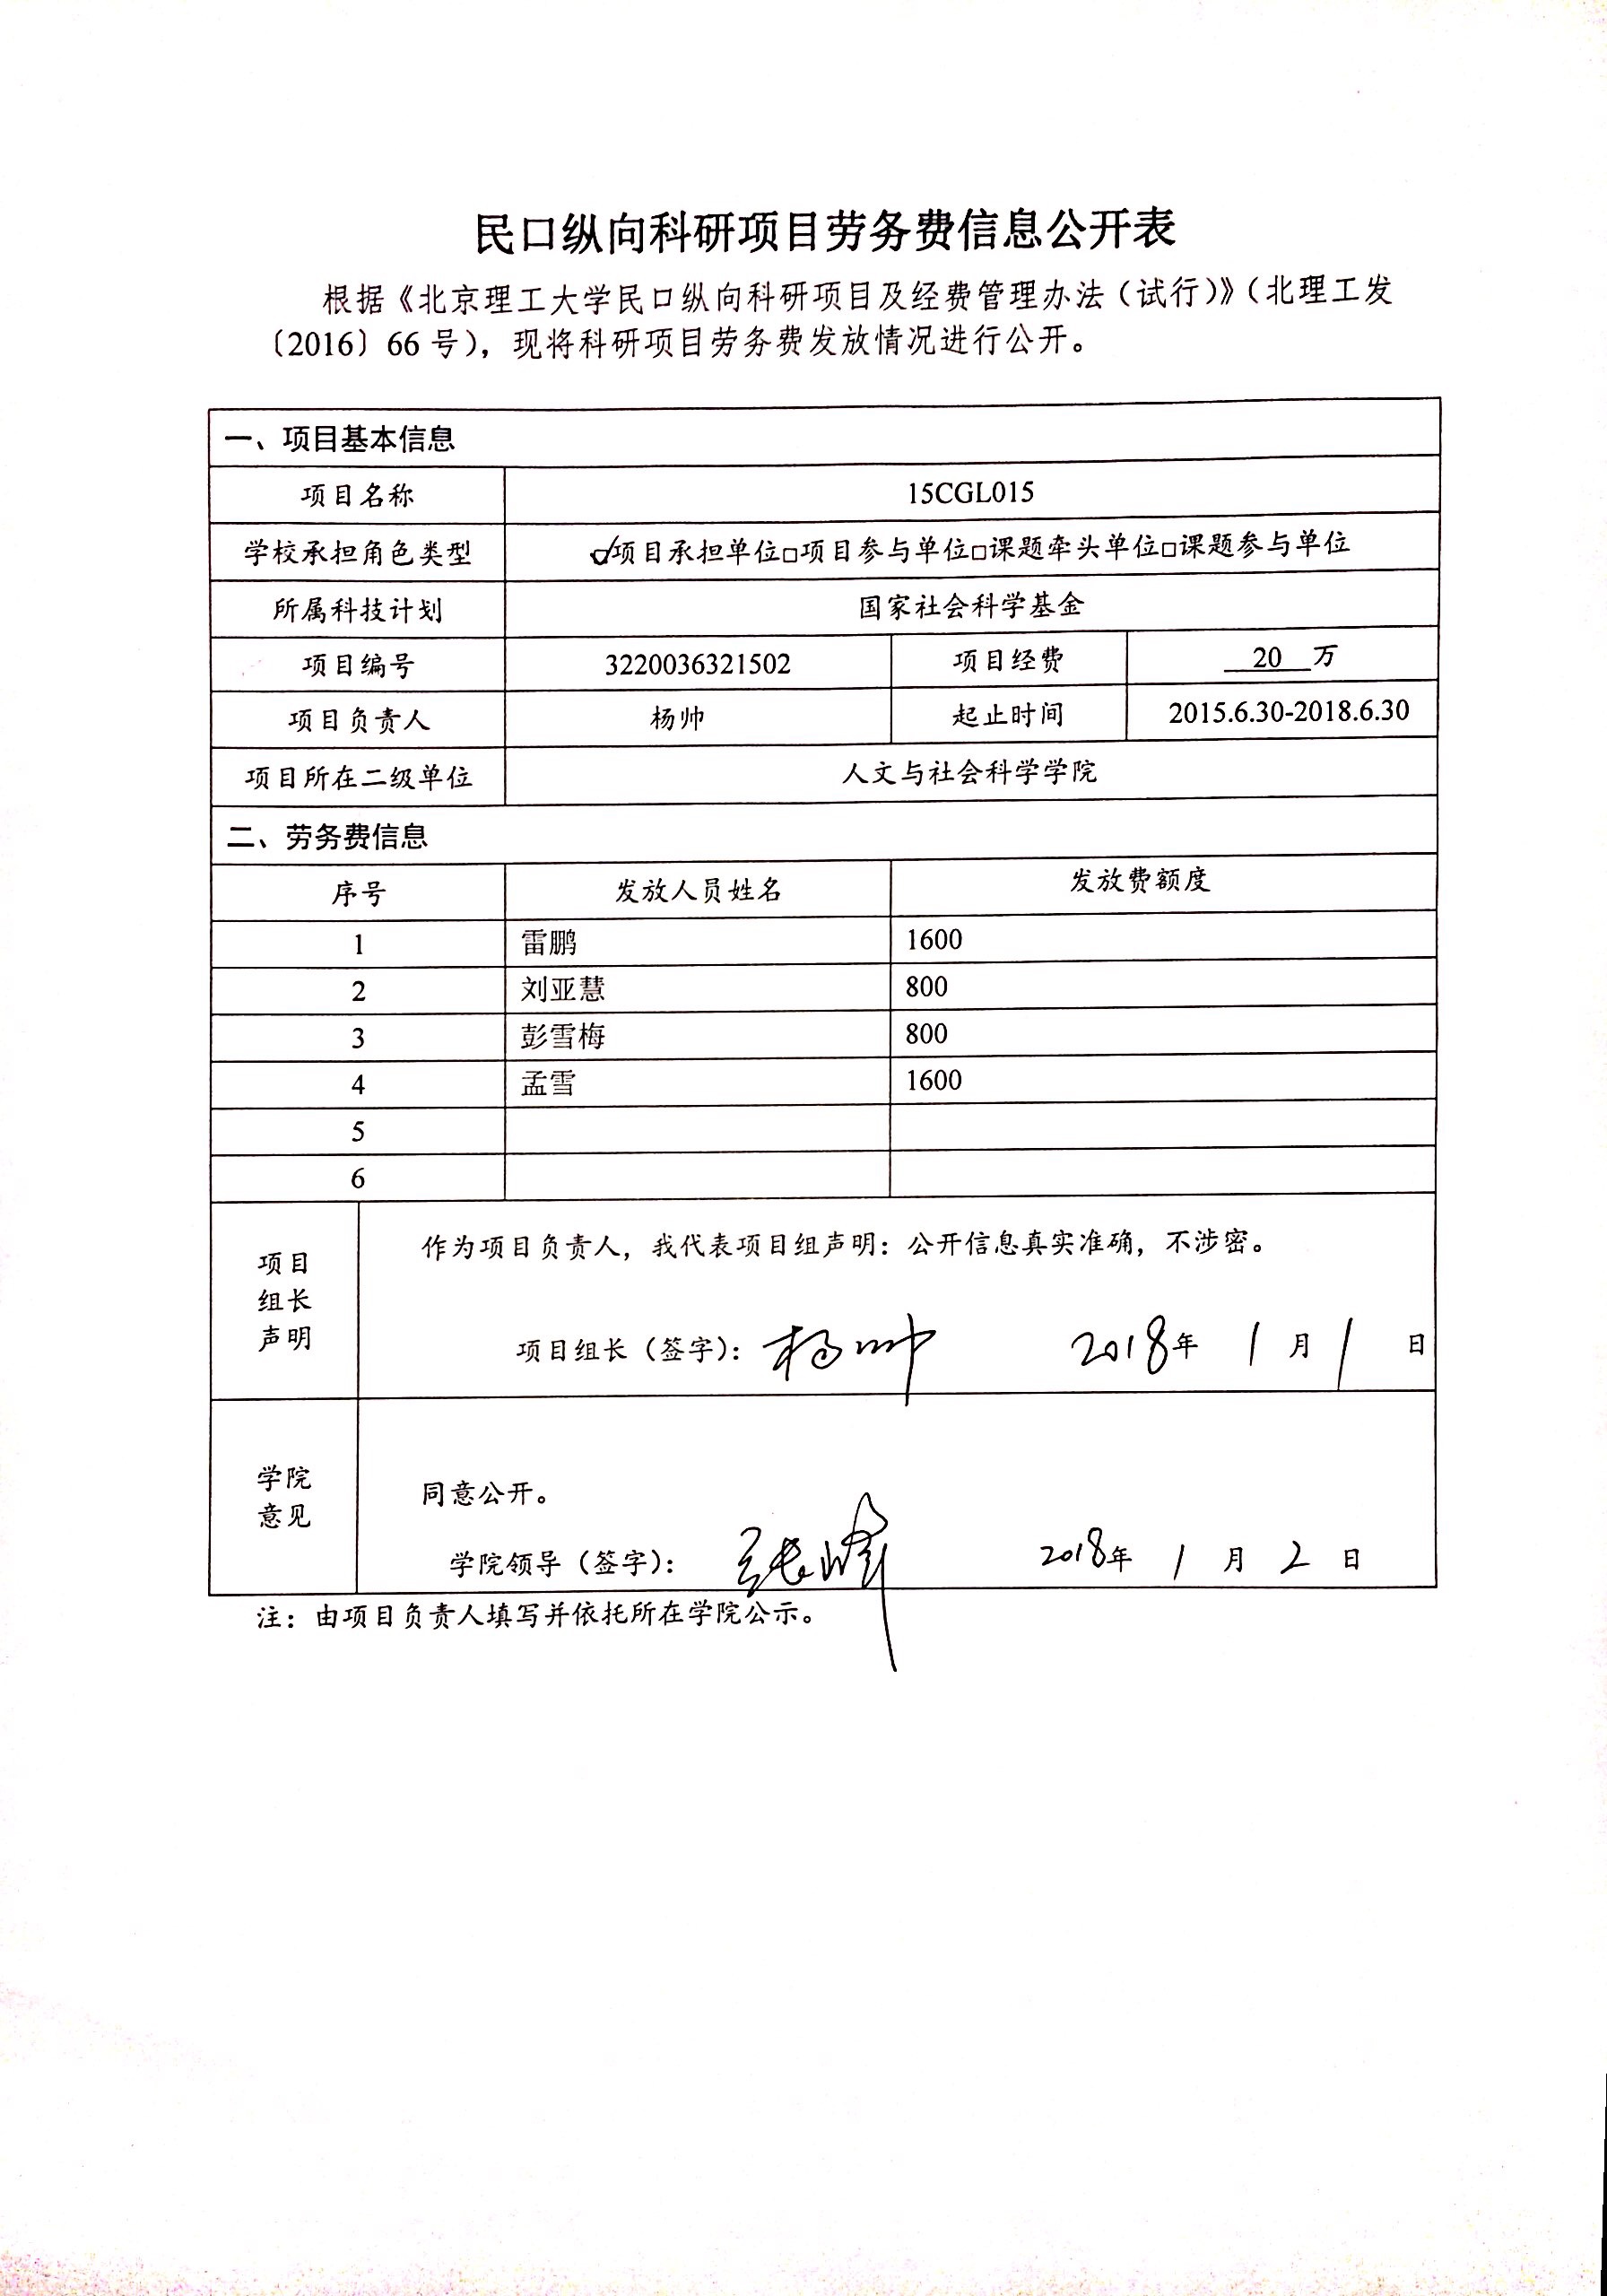 民口纵向科研项目劳务费信息公开表
根据《北京理工大学民口纵向科研项目及经费管理办法（试行）》（北理工发
〔2016〕66号），现将科研项目劳务费发放情况进行公开。
一、项目基本信息
项目名称 15CGL015
学校承担角色类型 ☑项目承担单位□项目参与单位□课题牵头单位□课题参与单位
所属科技计划 国家社会科学基金
项目编号 3220036321502 项目经费 20 万
项目负责人 杨帅 起止时间 2015.6.30-2018.6.30
项目所在二级单位 人文与社会科学学院
二、劳务费信息
序号 发放人员姓名 发放费额度
1 雷鹏 1600
2 刘亚慧 800
3 彭雪梅 800
4 孟雪 1600
5
6
项目
组长
声明
作为项目负责人，我代表项目组声明：公开信息真实准确，不涉密。
项目组长（签字）：杨帅 2018年 1 月 1 日
学院
意见
同意公开。
学院领导（签字）： 2018年 1 月 2 日
注：由项目负责人填写并依托所在学院公示。